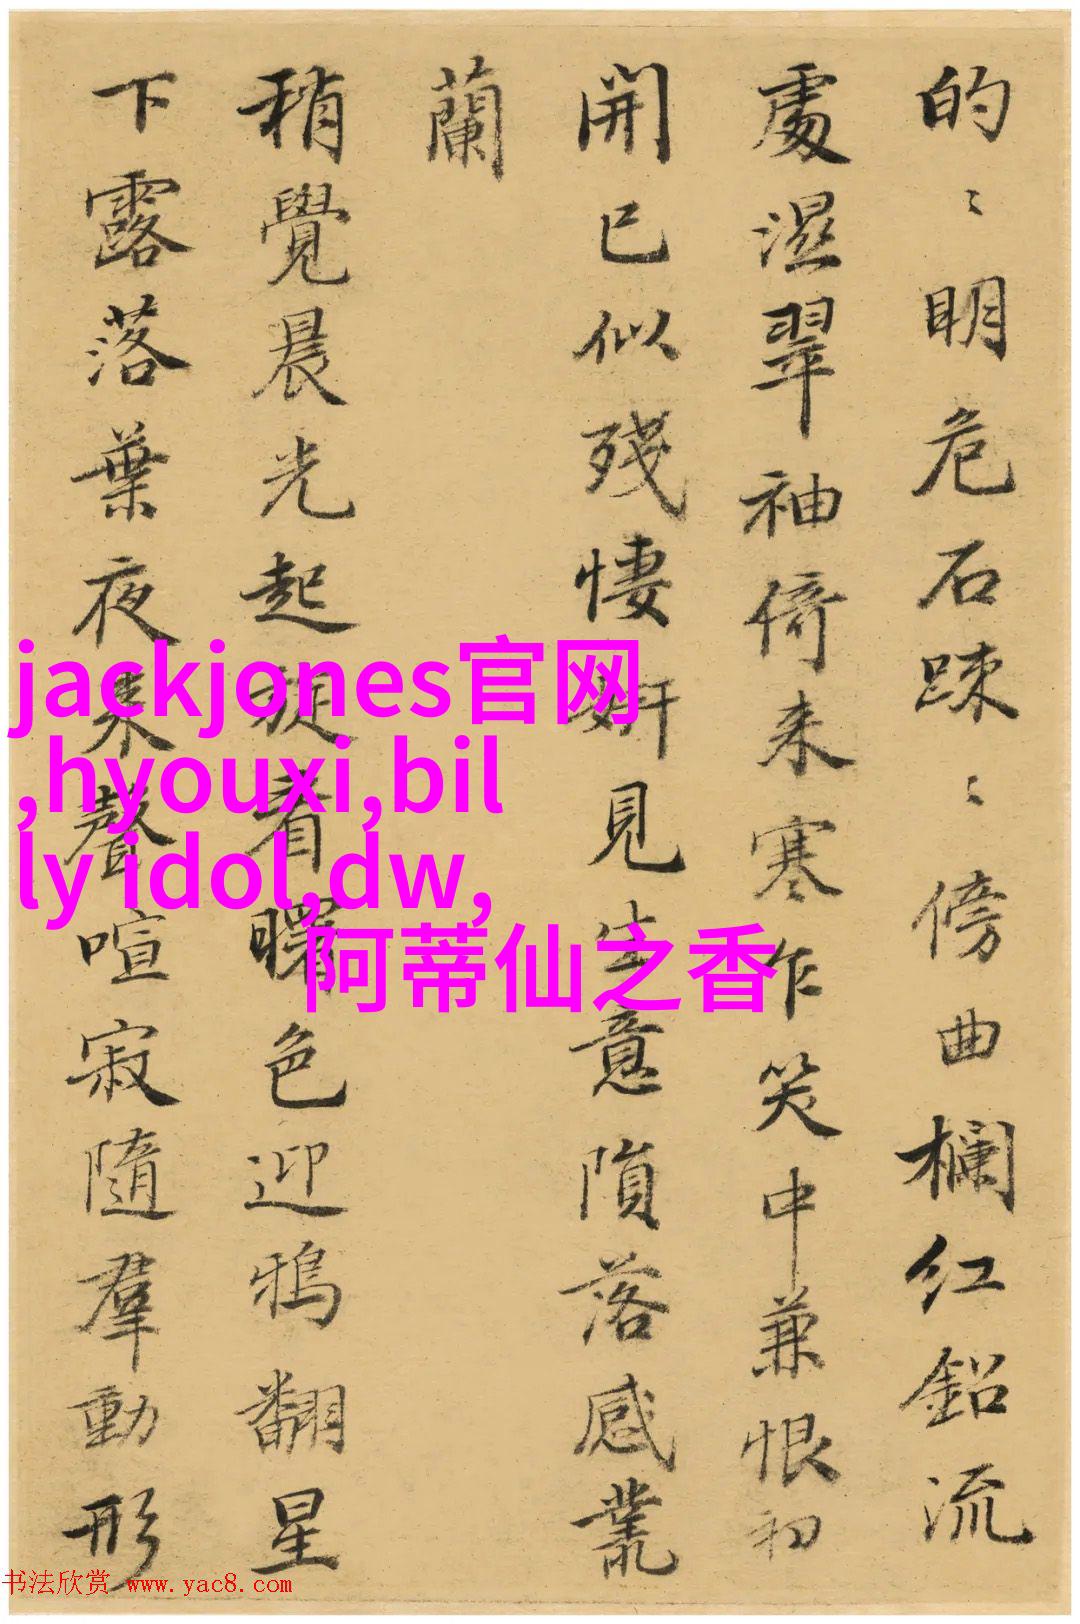 的〻明危石疎〻傍曲欄红鈆流
處濕翠袖倚来寒乍笑中兼恨初
開已似殘悽妍見生意隕落感叢
蘭
稍覺晨光起旋看曙色迎鴉翻星
下露落葉夜来聲喧寂隨羣動形
jackjones官网
,hyouxi,bil
ly idol,dw,
阿蒂仙之香
书法欣赏 www.yac8.com